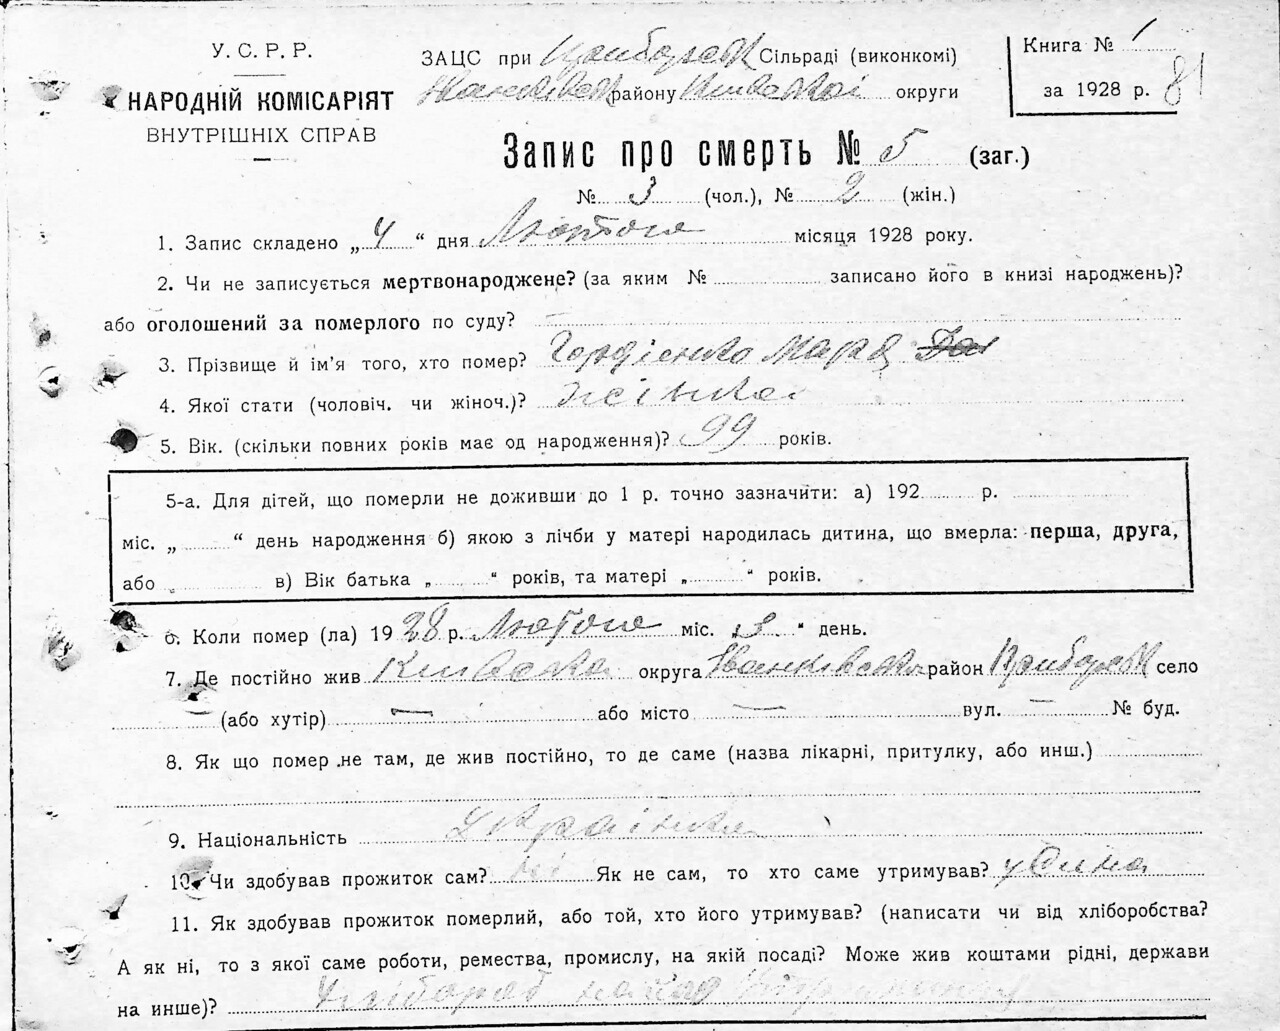 У. С. Р. Р.
НАРОДНІЙ КОМІСАРІЯТ
ВНУТРІШНІХ СПРАВ
ЗАЦС при Сільраді (виконкомі)
району Київської округи
Книга № 1
за 1928 р. 81
Запис про смерть № 5 (заг.)
№ 3 (чол.), № 2 (жін.)
1. Запис складено „ 4 “ дня Лютого місяця 1928 року.
2. Чи не записується мертвонароджене? (за яким № записано його в книзі народжень)?
або оголошений за померлого по суду?
3. Прізвище й ім'я того, хто помер? Гордієнко
4. Якої стати (чоловіч. чи жіноч.)? жінка
5. Вік. (скільки повних років має од народження)? 99 років.
5-а. Для дітей, що померли не доживши до 1 р. точно зазначити: а) 192 р.
міс. „ “ день народження б) якою з лічби у матері народилась дитина, що вмерла: перша, друга,
або в) Вік батька „ “ років, та матері „ “ років.
6. Коли помер (ла) 1928 р. Лютого міс. „ 3 “ день.
7. Де постійно жив Київська округа Іванківський район село
— (або хутір) — або місто — вул. — № буд.
8. Як що помер не там, де жив постійно, то де саме (назва лікарні, притулку, або инш.)
9. Національність Українка
10. Чи здобував прожиток сам? ні Як не сам, то хто саме утримував? у Сина
11. Як здобував прожиток померлий, або той, хто його утримував? (написати чи від хліборобства?
А як ні, то з якої саме роботи, ремества, промислу, на якій посаді? Може жив коштами рідні, держави
на инше)? Хлібороб